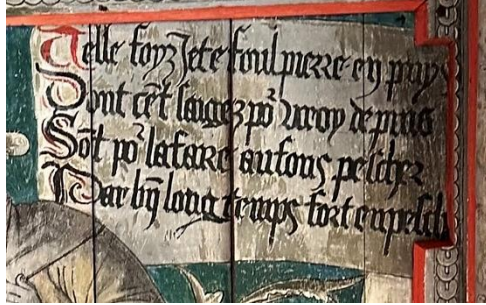 Telle foyz Jete foul pierre en puys
Dont cēt saigez po᷒ vroy depuis
Sōt po᷒ lafaire aufons pescher
Par bņ long temps fort enpesch